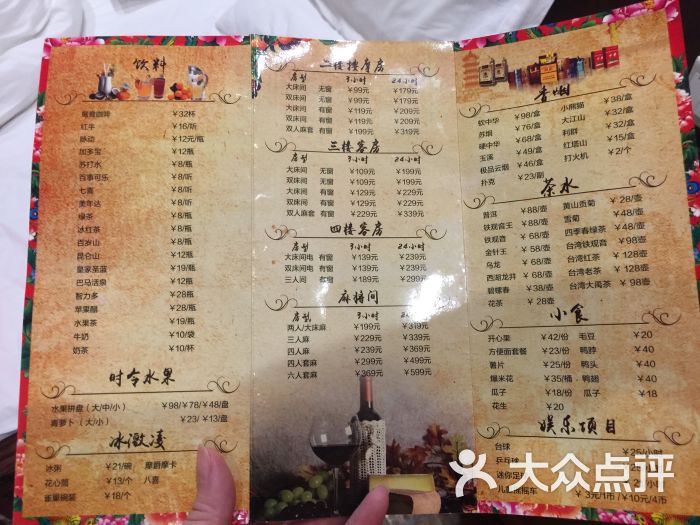 饮料
鸳鸯咖啡 ¥32/杯
红牛 ¥16/听
脉动 ¥12元/瓶
加多宝 ¥12/瓶
苏打水 ¥8/瓶
百事可乐 ¥8/听
七喜 ¥8/听
美年达 ¥8/听
绿茶 ¥8/瓶
冰红茶 ¥8/瓶
百岁山 ¥8/瓶
昆仑山 ¥12/瓶
皇家圣蓝 ¥12/瓶
巴马活泉 ¥12/瓶
智力多 ¥28/瓶
苹果醋 ¥28/瓶
水果茶 ¥19/瓶
牛奶 ¥10/袋
奶茶 ¥10/杯
时令水果
水果拼盘(大/中/小) ¥98/¥78/¥48/盘
青萝卜(大/小) ¥23/¥13/盘
冰激凌
冰粥 ¥21/碗 摩爵摩卡
花心筒 ¥13/个 八喜
雀巢碗装 ¥18/个
二楼按摩房
房型 3小时 24小时
大床间 无窗 ¥99元 ¥179元
双床间 无窗 ¥99元 ¥179元
大床间 有窗 ¥119元 ¥209元
双床间 有窗 ¥119元 ¥209元
双人麻套 有窗 ¥199元 ¥319元
三楼客房
房型 3小时 24小时
大床间 无窗 ¥109元 ¥199元
双床间 无窗 ¥109元 ¥199元
大床间 有窗 ¥129元 ¥229元
双床间 有窗 ¥129元 ¥229元
双人麻套 有窗 ¥229元 ¥339元
四楼客房
房型 3小时 24小时
大床间电 有窗 ¥139元 ¥239元
双床间电 有窗 ¥139元 ¥239元
三人间 有窗 ¥149元 ¥259元
麻将间
房型 3小时
两人/大床麻 ¥199元 ¥319元
三人麻 ¥229元 ¥339元
四人麻 ¥239元 ¥369元
四人套麻 ¥299元 ¥499元
六人套麻 ¥369元 ¥599元
香烟
软中华 ¥98/盒 小熊猫 ¥38/盒
苏烟 ¥76/盒 大江山 ¥32/盒
硬中华 ¥68/盒 利群 ¥31/盒
玉溪 ¥49/盒 红塔山 ¥15/盒
极品云烟 ¥46/盒 打火机 ¥2/个
扑克 ¥23/副
茶水
普洱 ¥88/壶 黄山贡菊 ¥28/壶
铁观音王 ¥88/壶 雪菊 ¥48/壶
铁观音 ¥58/壶 四季春绿茶 ¥48/壶
金针王 ¥58/壶 台湾铁观音 ¥98/壶
乌龙 ¥68/壶 台湾红茶 ¥48/壶
西湖龙井 ¥68/壶 台湾老茶 ¥128/壶
碧螺春 ¥38/壶 台湾大禹茶 ¥168/壶
花茶 ¥28/壶
小食
开心果 ¥42/份 毛豆 ¥20
方便面套餐 ¥23/份 鸭脖 ¥40
薯片 ¥21/份 鸭头 ¥40
爆米花 ¥35/桶 鸭翅 ¥40
瓜子 ¥18/份 瓜子 ¥18
花生 ¥20
娱乐项目
台球 ¥25/小时
乒乓球
迷你足
儿童摇摇车 ¥3元1币/¥10元/4币
大众点评